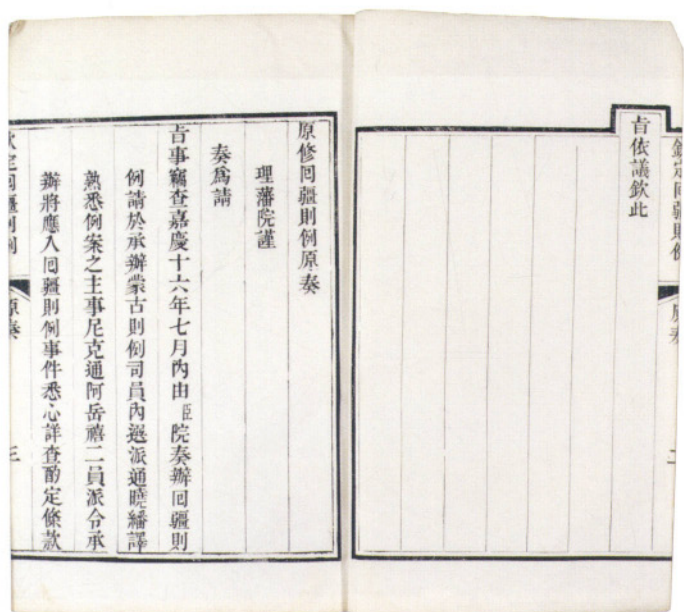 欽定回疆則例
原奏
二
旨依議欽此
原修回疆則例原奏
理藩院謹
奏爲請
旨事竊查嘉慶十六年七月內由臣院奏辦回疆則
例請於承辦蒙古則例司員內遴派通曉繙譯
熟悉例案之主事尼克通阿岳禧二員派令承
辦將應入回疆則例事件悉心詳查酌定條款
欽定回疆則例
原奏
三